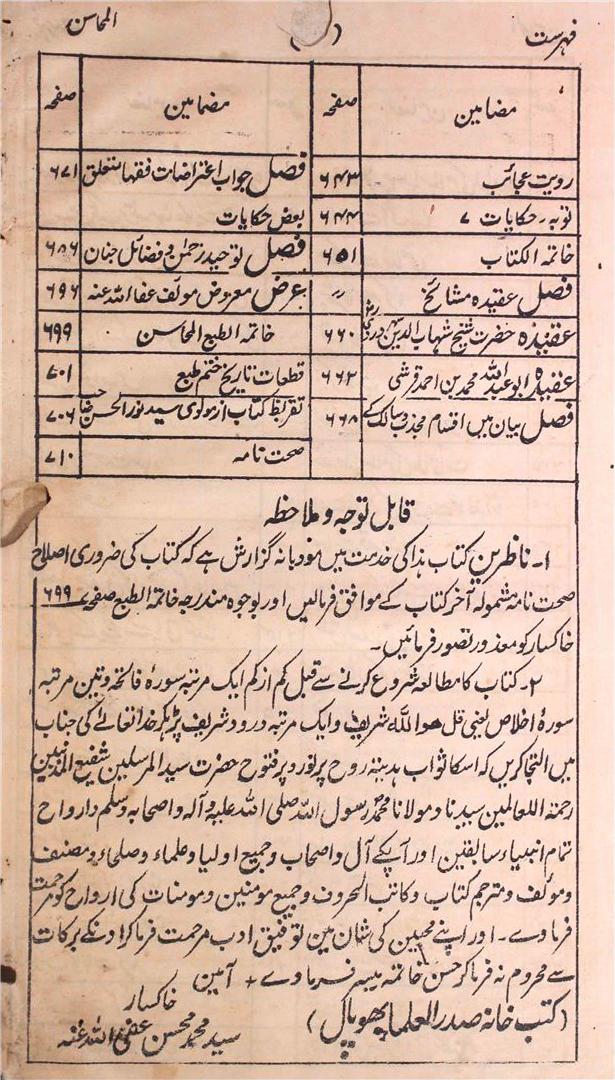 فہرست ( ) المحاسن
مضامین صفحہ مضامین صفحہ
رویت عجائب ۶۴۳ فصل جواب اعتراضات فقہا متعلق ۶۷۱
توبہ۔ حکایات ۷ ۶۴۴ بعض حکایات
خاتمہ الکتاب ۶۵۱ فصل توحید رحمٰن و فضائل جنان ۶۸۶
فصل عقیدہ مشائخ " عرض معروض مولف عفا اللہ عنہ ۶۹۶
عقیدہ حضرت شیخ شہاب الدین سہروردی ۶۶۰ خاتمہ الطبع المحاسن ۶۹۹
عقیدہ ابو عبداللہ محمد بن احمد قرشی ۶۶۲ قطعات تاریخ ختم طبع ۷۰۱
فصل بیان میں اقسام مجذوب سالک کے ۶۶۸ تقریظ کتاب از مولوی سید نور الحسن ۷۰۶
صحت نامہ ۷۱۰
قابل توجہ و ملاحظہ
۱۔ ناظرین کتاب ہذا کی خدمت میں مودبانہ گزارش ہے کہ کتاب کی ضروری اصلاح
صحت نامہ مشمولہ آخر کتاب کے موافق فرمالیں اور بوجوہ مندرجہ خاتمۃ الطبع صفحہ ۶۹۹
خاکسار کو معذور تصور فرمائیں۔
۲۔ کتاب کا مطالعہ شروع کرنے سے قبل کم از کم ایک مرتبہ سورۂ فاتحہ و تین مرتبہ
سورۂ اخلاص یعنی قل ھو اللہ شریف و ایک مرتبہ درود شریف پڑہکر خدا تعالے کی جناب
میں التجا کریں کہ اسکا ثواب ہدیۃ روح پر نور و پر فتوح حضرت سید المرسلین شفیع المذنبین
رحمۃ اللعالمین سیدنا و مولانا محمد رسول اللہ صلی اللہ علیہ و آلہ و اصحابہ وسلم و ارواح
تمام انبیاء سابقین اور آپکے آل و اصحاب و جمیع اولیا و علماء و صلحاء و مصنف
و مولف و مترجم کتاب و کاتب الحروف و جمیع مومنین و مومنات کی ارواح کو مرحمت
فرماوے۔ اور اپنے محبین کی شان میں توفیق ادب مرحمت فرما کر اونکے برکات
سے محروم نہ فرما کر حسن خاتمہ میسر فرماوے + آمین
خاکسار
(کتب خانہ صدر العلما بھوپال) سید محمد محسن عفی اللہ عنہ